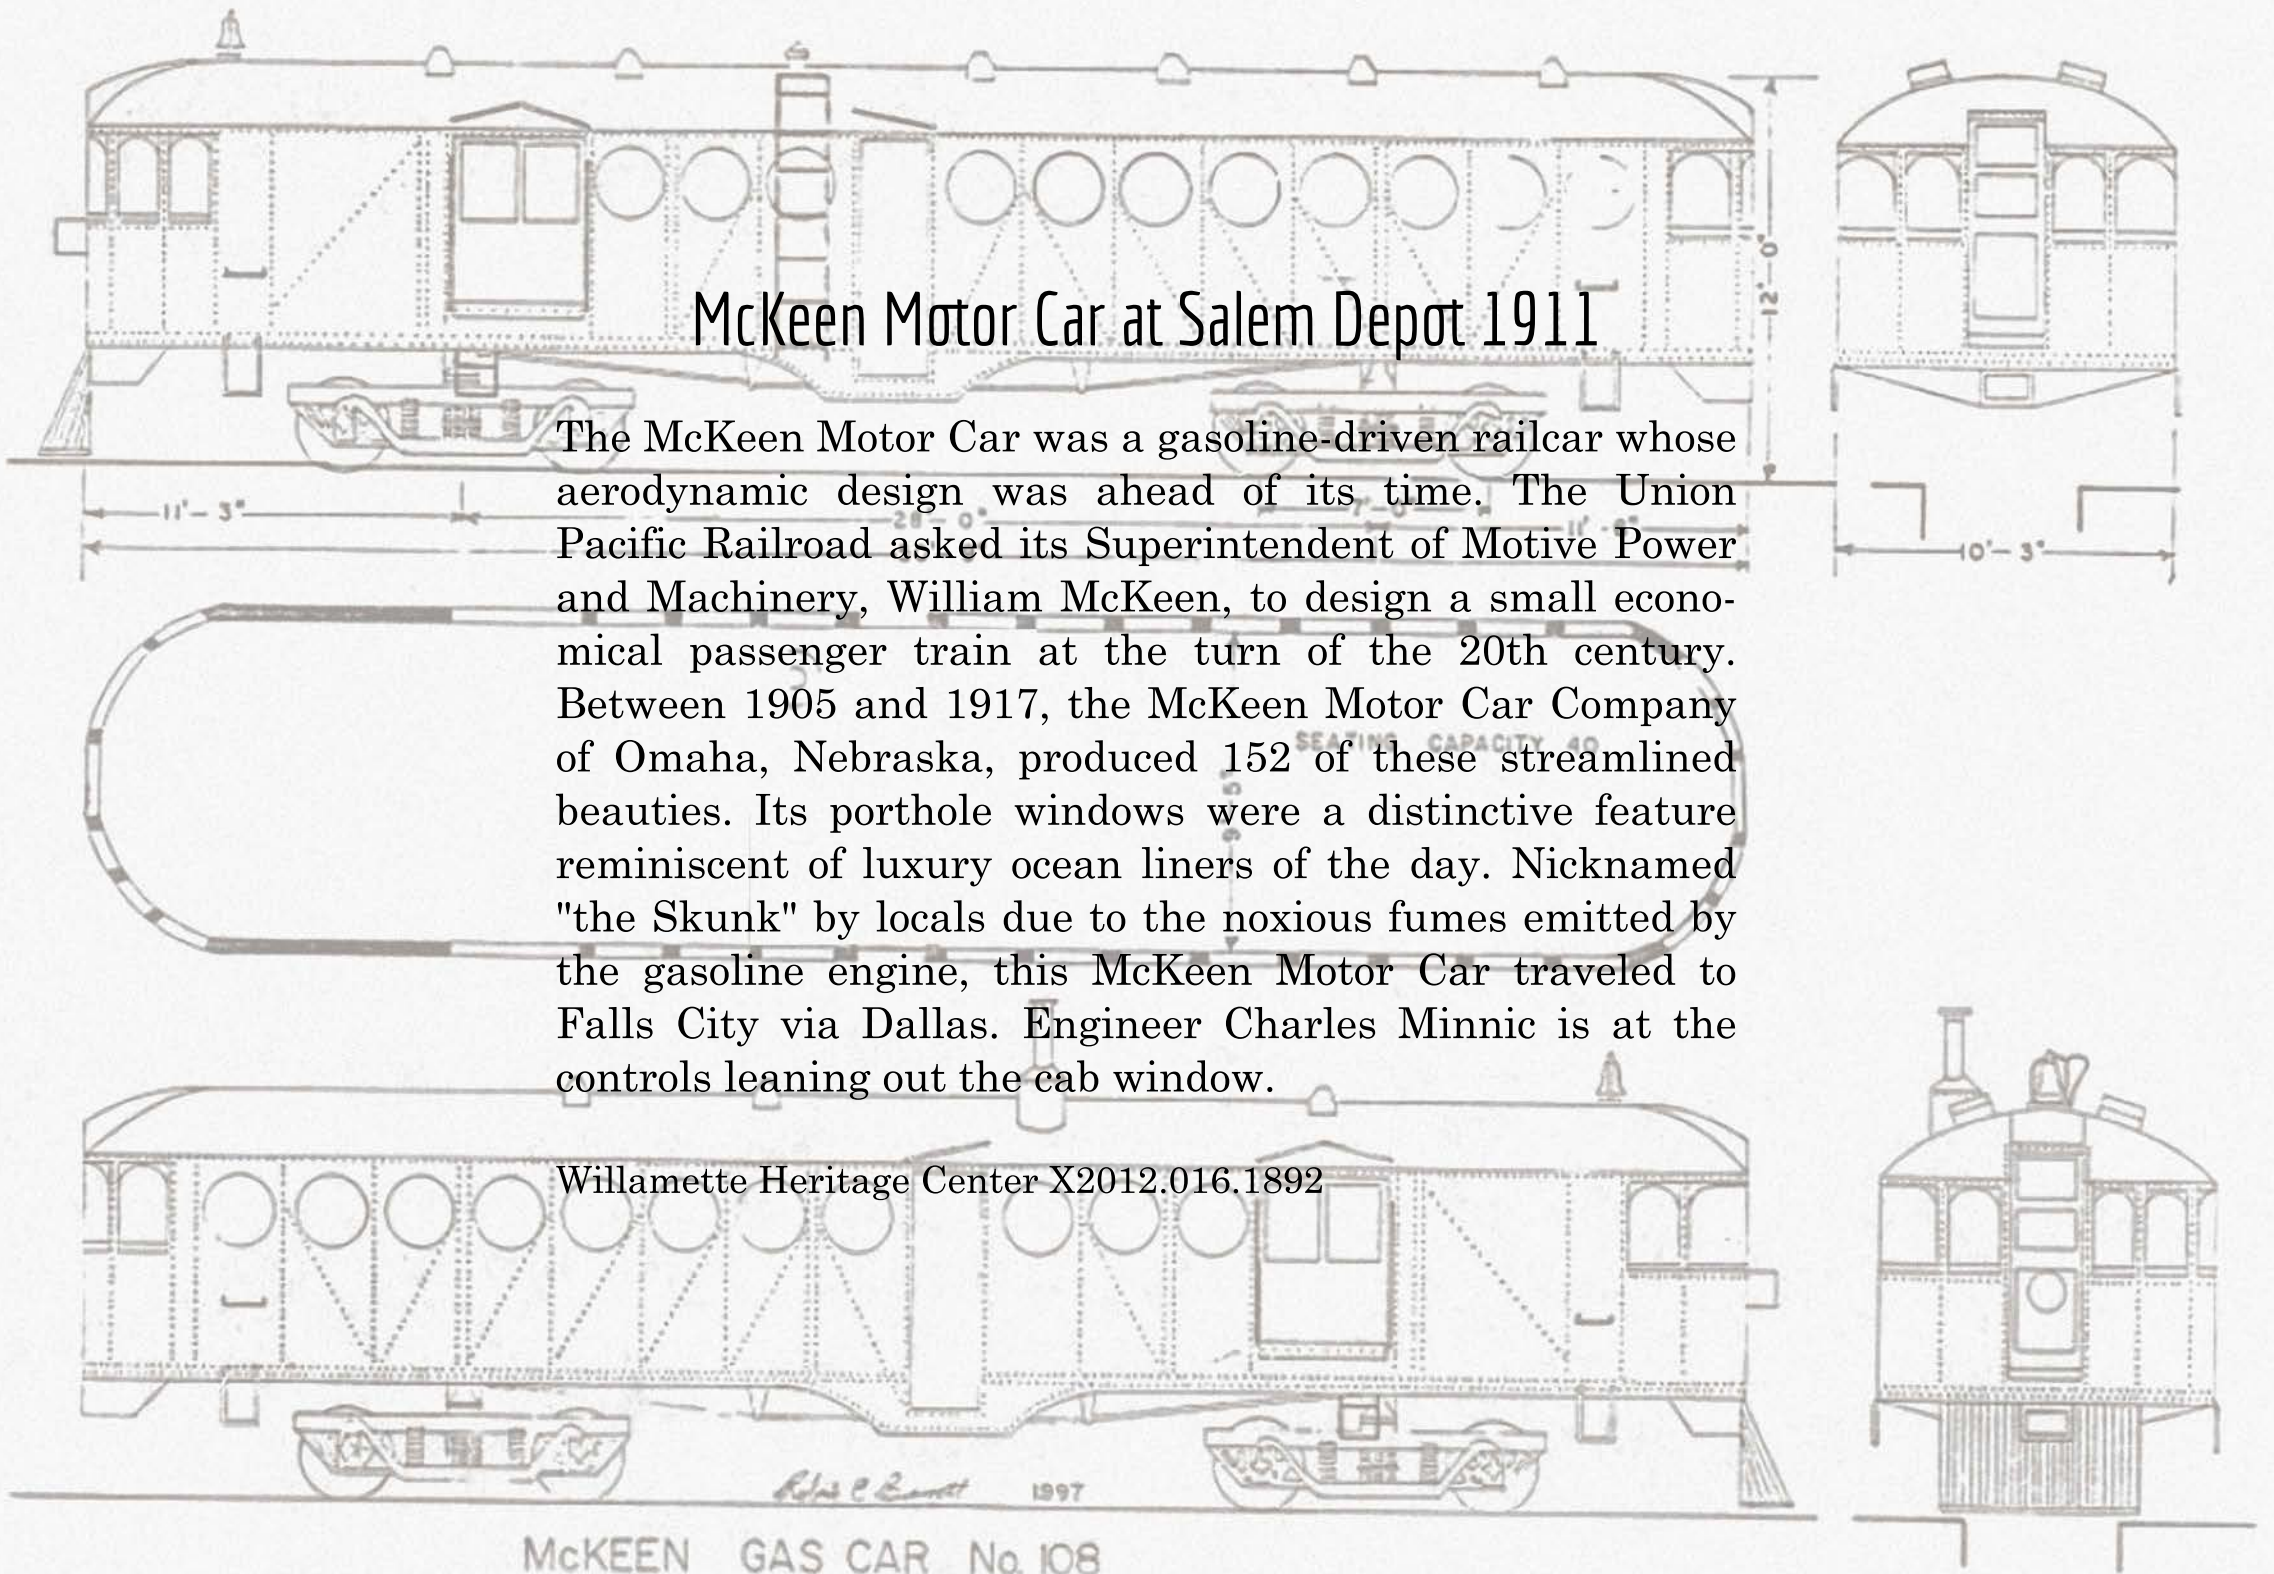 12'-0"
McKeen Motor Car at Salem Depot 1911
The McKeen Motor Car was a gasoline-driven railcar whose
aerodynamic design was ahead of its time. The Union
Pacific Railroad asked its Superintendent of Motive Power
and Machinery, William McKeen, to design a small econo-
mical passenger train at the turn of the 20th century.
Between 1905 and 1917, the McKeen Motor Car Company
of Omaha, Nebraska, produced 152 of these streamlined
beauties. Its porthole windows were a distinctive feature
reminiscent of luxury ocean liners of the day. Nicknamed
"the Skunk" by locals due to the noxious fumes emitted by
the gasoline engine, this McKeen Motor Car traveled to
Falls City via Dallas. Engineer Charles Minnic is at the
controls leaning out the cab window.
Willamette Heritage Center X2012.016.1892
11'-3"
28'-0"
7'-0"
10'-3"
SEATING CAPACITY 40
1997
McKEEN GAS CAR No. 108